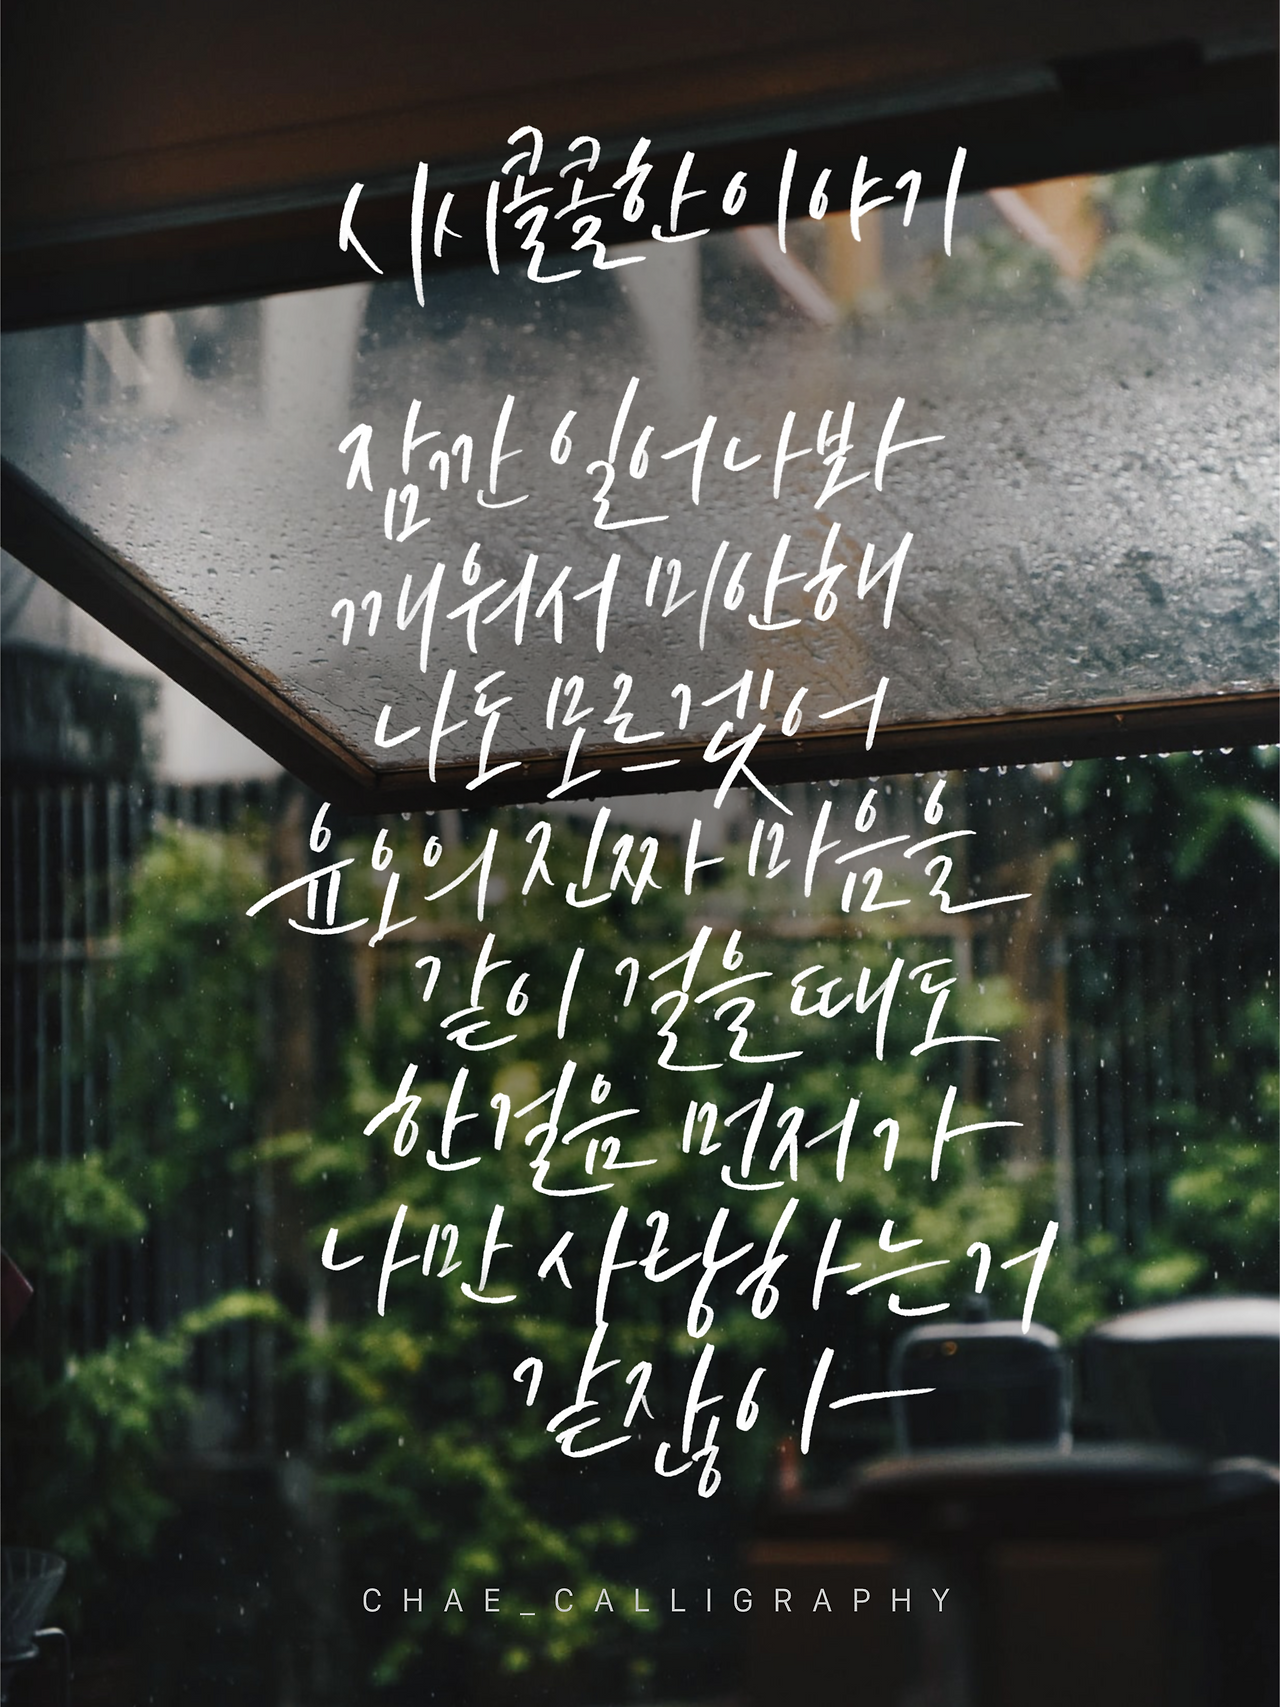 시시콜콜한 이야기
잠깐 일어나봐
깨워서 미안해
나도 모르겠어
윤오의 진짜 마음을
같이 걸을 때도
한 걸음 먼저 가
나만 사랑하는 거
같잖아
CHAE_CALLIGRAPHY